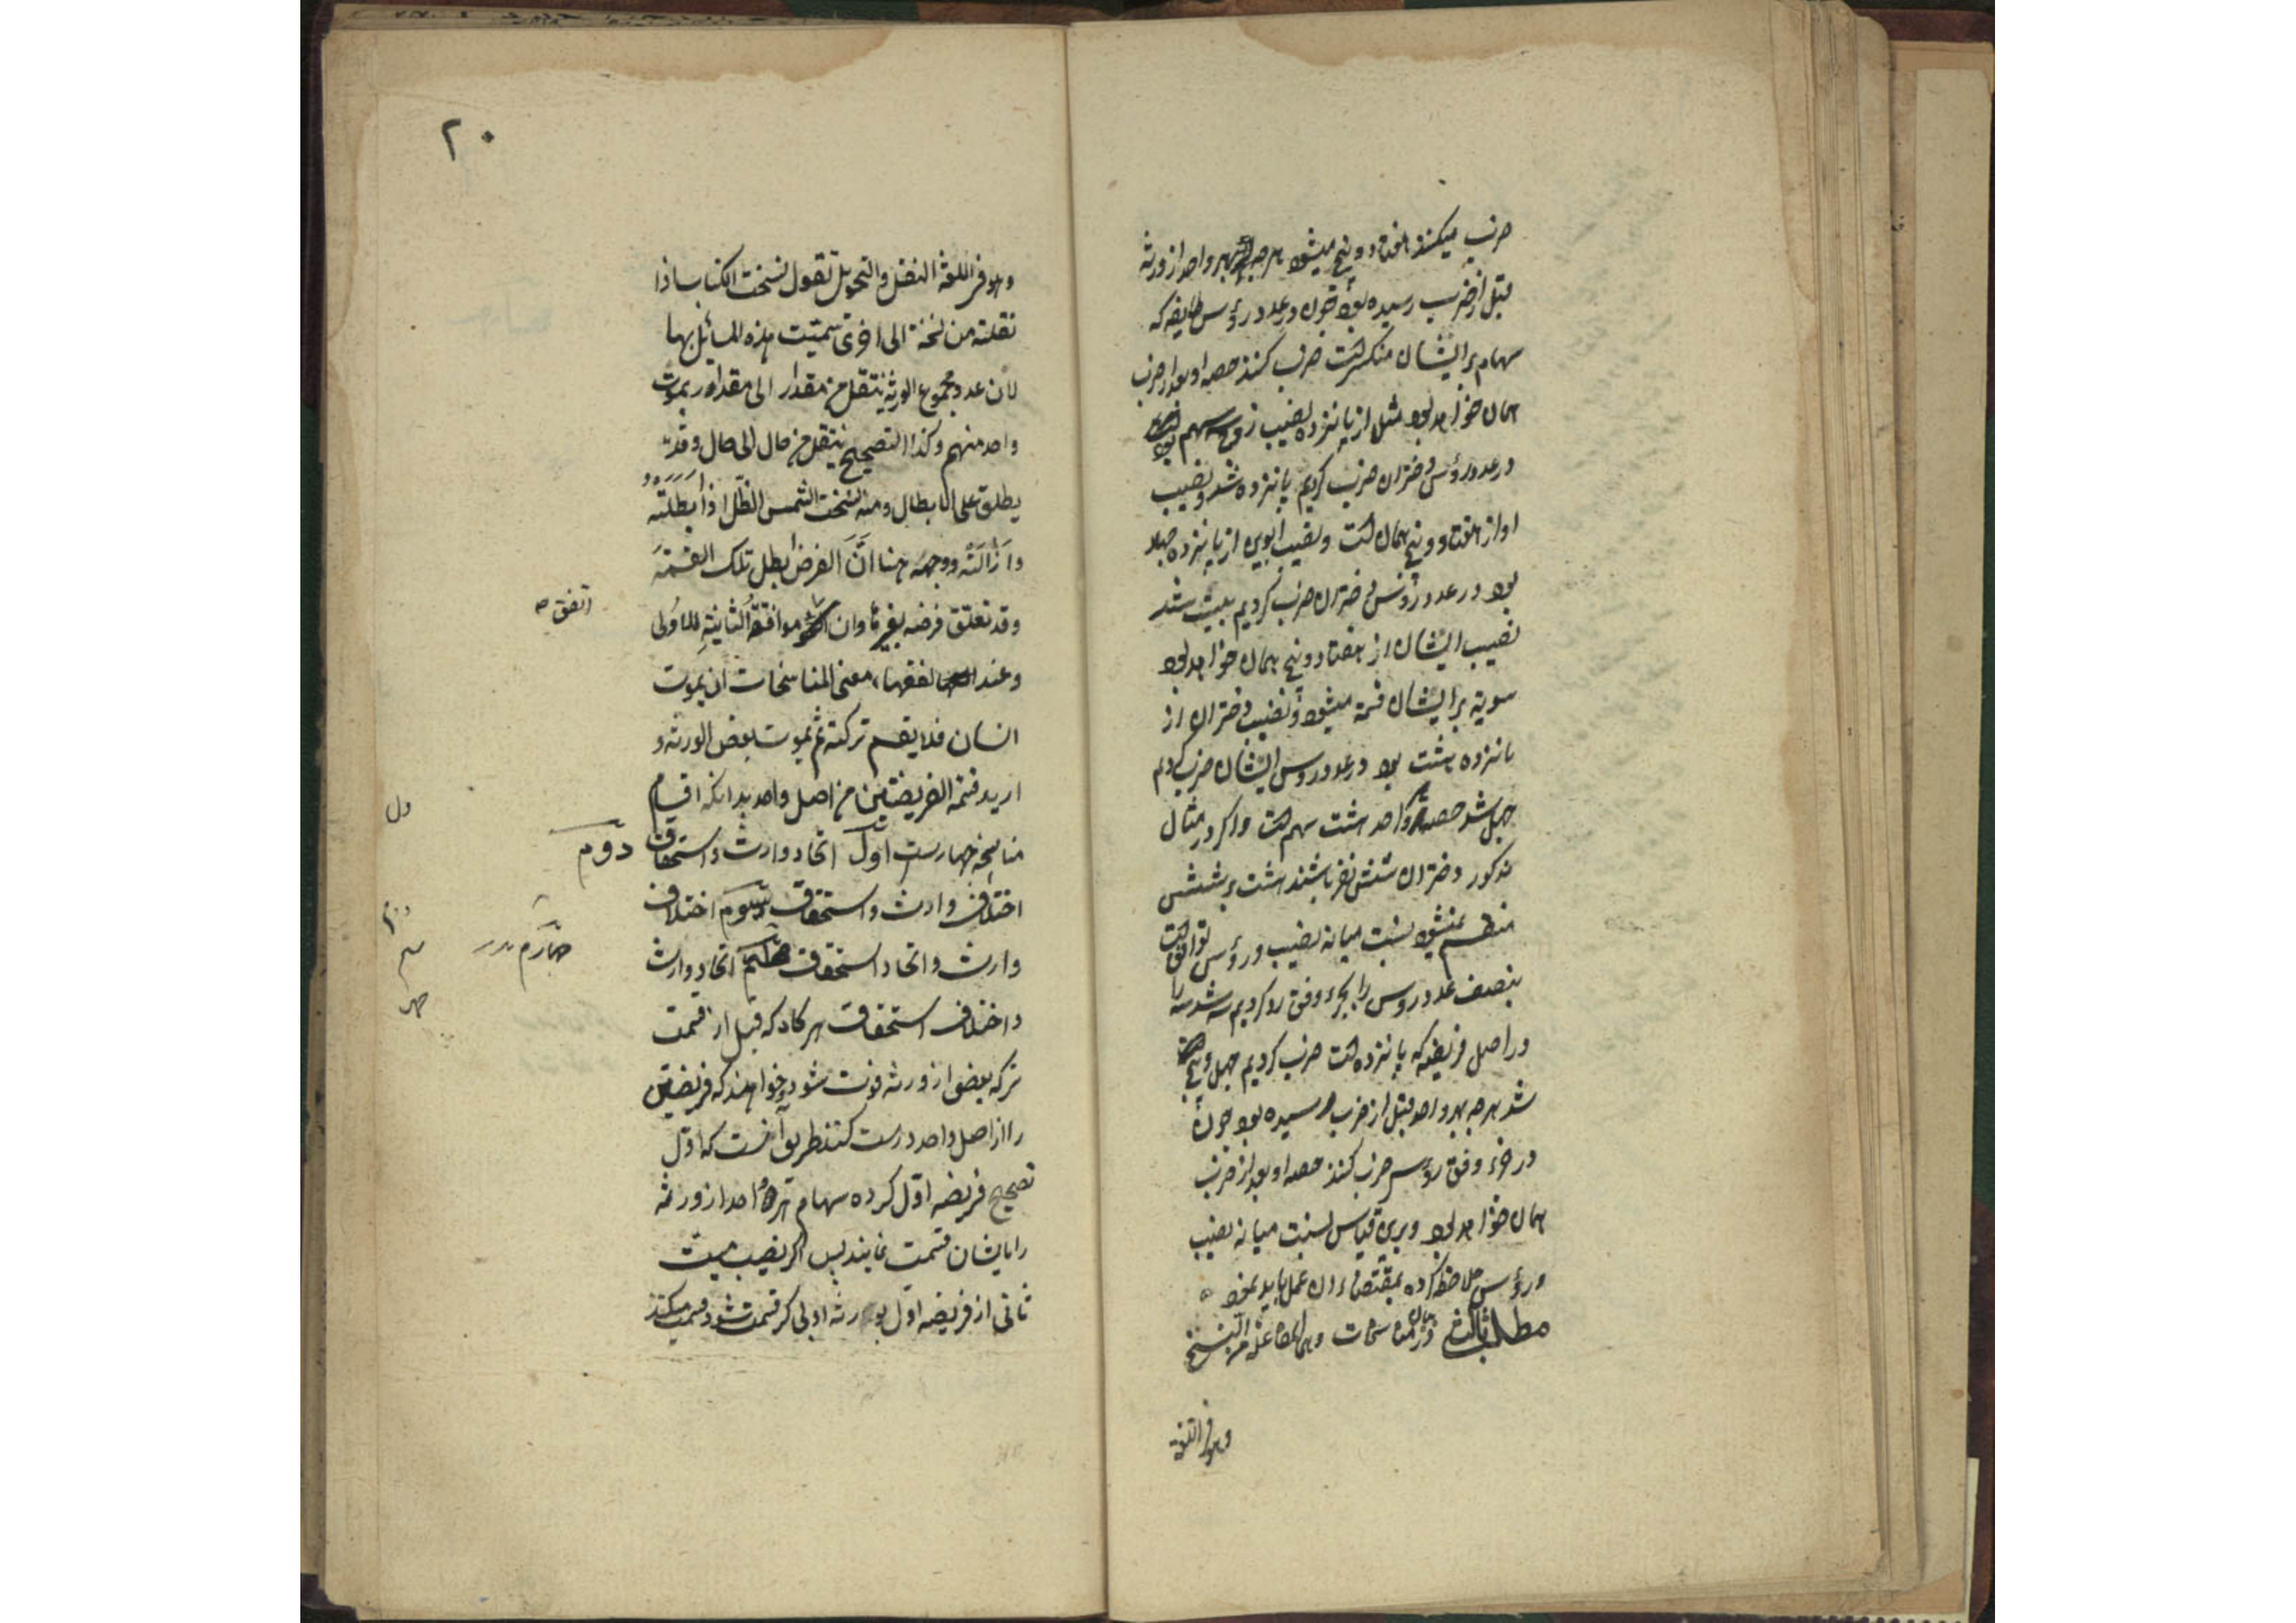 ضرب میکنند هفتاد و پنج میشود هرچه بهر واحد از ورثه
قبل از ضرب رسیده بود چون در عدد رؤس طایفه که
سهام بر ایشان منکسر است ضرب کنند حصه او بعد از ضرب
همان خواهد بود مثل از پانزده نصیب زوج سه سهم بود
در عدد رؤس دختران ضرب کردیم پانزده شد و نصیب
او از هفتاد و پنج همان است و نصیب ابوین از پانزده چهار
بود در عدد رؤس دختران ضرب کردیم بیست شد
نصیب ایشان از هفتاد و پنج همان خواهد بود
سویه بر ایشان قسمة میشود و نصیب دختران از
پانزده هشت بود در عدد روس ایشان ضرب کردیم
چهل شد حصه هر واحد هشت سهم است و اگر در مثال
مذکور دختران شش نفر باشند هشت بر شش
منقسم نمیشود نسبت میانه نصیب و رؤس توافق است
بنصف عدد روس را بجزء وفق رد کردیم سه شد سه را
در اصل فریضه که پانزده است ضرب کردیم چهل و پنج
شد هرچه بهر واحد قبل از ضرب رسیده بود چون
در جزء وفق رؤس ضرب کنند حصه او بعد از ضرب
همان خواهد بود و برین قیاس نسبت میانه نصیب
و رؤس ملاحظه کرده بمقتضاء ان عمل باید نمود
مطلب ثالث در بیان مناسخات وهی المفاعلة من النسخ
وهو فی اللغة
۲۰
وهو فی اللغة النقل والتحویل تقول نسخت الکتاب اذا
نقلته من نسخة الی اخری سمّیت هذه المسائل بها
لان عدد مجموع الورثة ینتقل من مقدار الی مقدار بموت
واحد منهم وکذا التصحیح ینتقل من حال الی حال وقد
یطلق علی الابطال ومنه نسخت الشمس الظّل اذا ابطلته
وازالته ووجهه هنا انّ الفرض ابطل تلک القسمة
وقد تعلق فرضه بغیرها وان موافقة الثانیة للاولی
اتفق صح
وعند الفقهاء معنی المناسخات ان یموت
انسان فلا یقسم ترکته ثم یموت بعض الورثه و
ارید قسمة الفریضتین من اصل واحد بدانکه اقسام
مناسخه چهارست اول اتحاد وارث و استحقاق دوّم
اختلاف وارث و استحقاق سوم اختلاف
وارث و اتحاد استحقاق اتحاد وارث
چهارم
و اختلاف استحقاق هر کاه که قبل از قسمت
ترکه بعضی از ورثه فوت شود و خواهند که فریضتین
را از اصل واحد درست کنند طریق آنست که اوّل
تصحیح فریضه اوّل کرده سهام هر واحد از ورثه
را بایشان قسمت نمایند پس اگر نصیب میت
ثانی از فریضه اول بورثه اولی کر قسمت شود قسمت میکنند